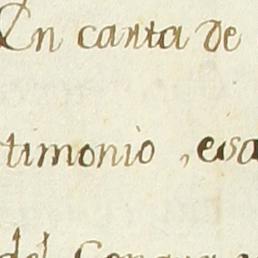 En carta de
timonio, esa
del